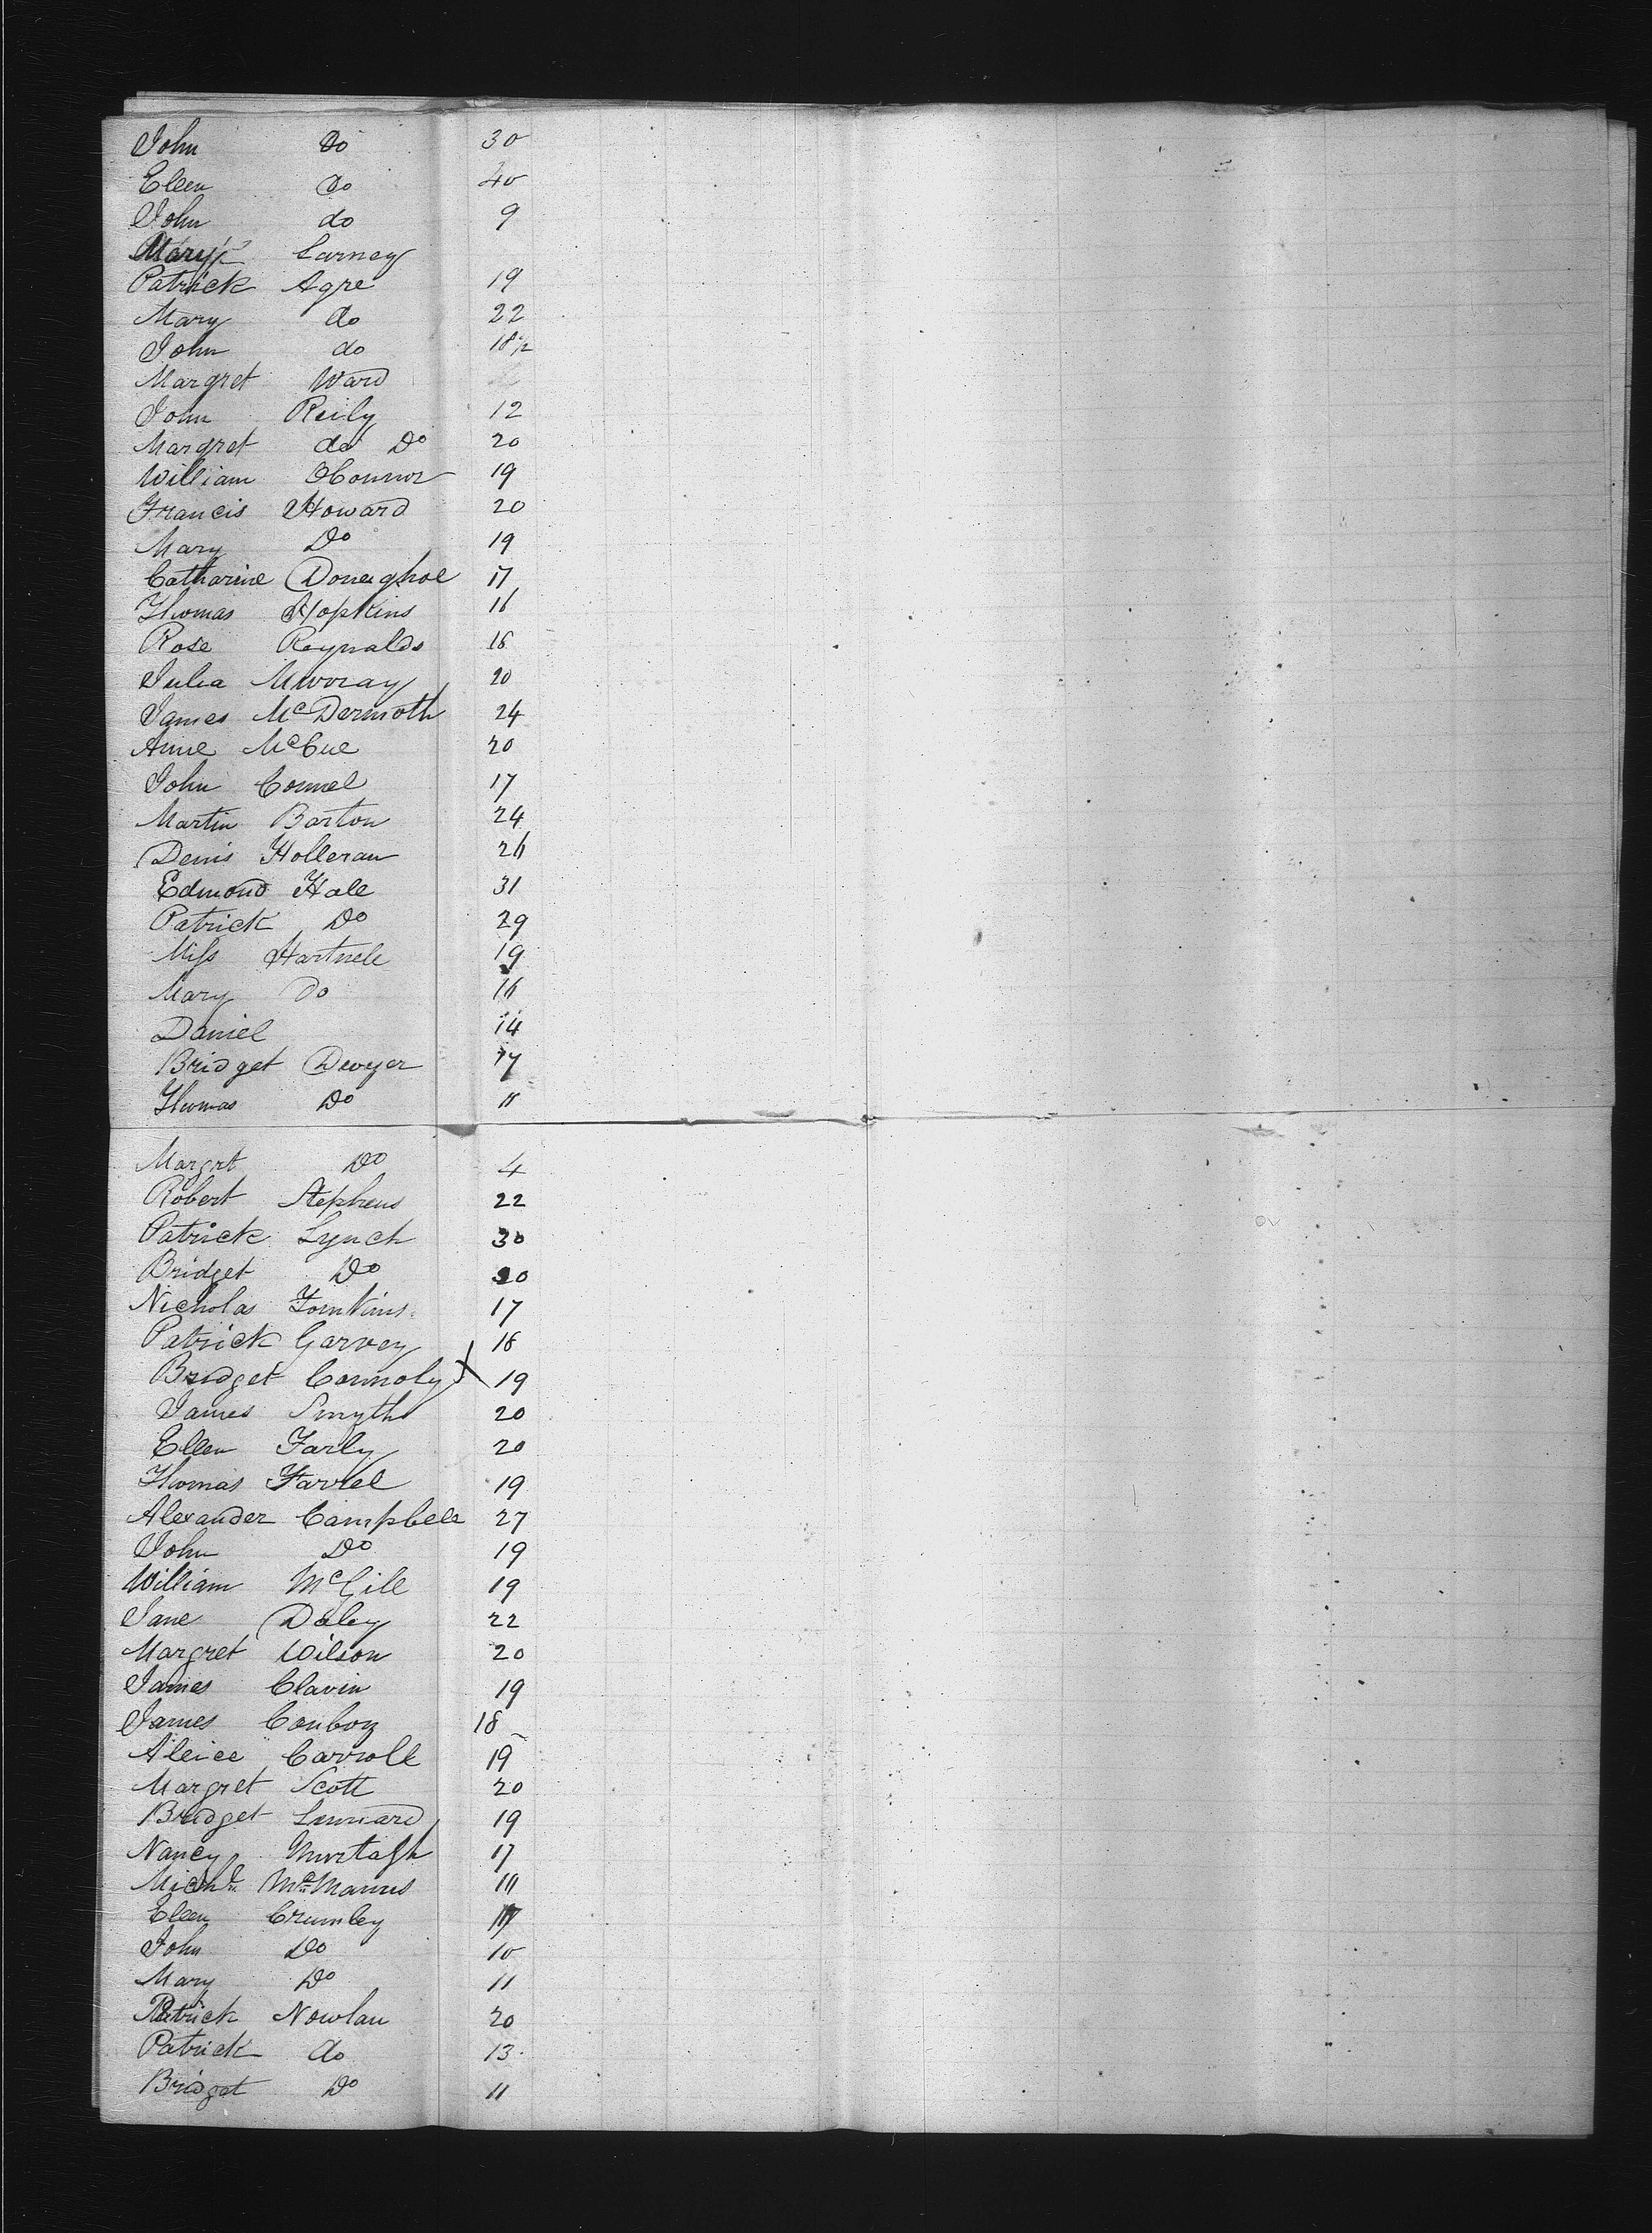 John Do 30
Ellen Do 40
John do 9
Mary Carney
Patrick Agre 19
Mary do 22
John do 18½
Margret Ward
John Reily 12
Margret do Do 20
William OConnor 19
Francis Howard 20
Mary Do 19
Catharine Donaghoe 17
Thomas Hopkins 16
Rose Reynalds 18
Julia Murray 20
James McDermoth 24
Anne McCue 20
John Connel 17
Martin Barton 24
Denis Holleran 26
Edmond Hale 31
Patrick Do 29
Miss Hartnell 19
Mary Do 16
Daniel 14
Bridget Dwyer 17
Thomas Do 11
Margrt Do 4
Robert Stephens 22
Patrick Lynch 30
Bridget Do 20
Nicholas Tomkins 17
Patrick Garvey 18
Bridget Connoly 19
James Smyth 20
Ellen Farly 20
Thomas Farrel 19
Alexander Campbell 27
John Do 19
William McGill 19
Jane Daley 22
Margret Wilson 20
James Clavin 19
James Conboy 18
Aleice Carroll 19
Margret Scott 20
Bridget Lennard 19
Nancy Murtagh 17
Michl McManus
Ellen Crumley
John Do 10
Mary Do 11
Patrick Nowlan 20
Patrick do 13
Bridget Do 11